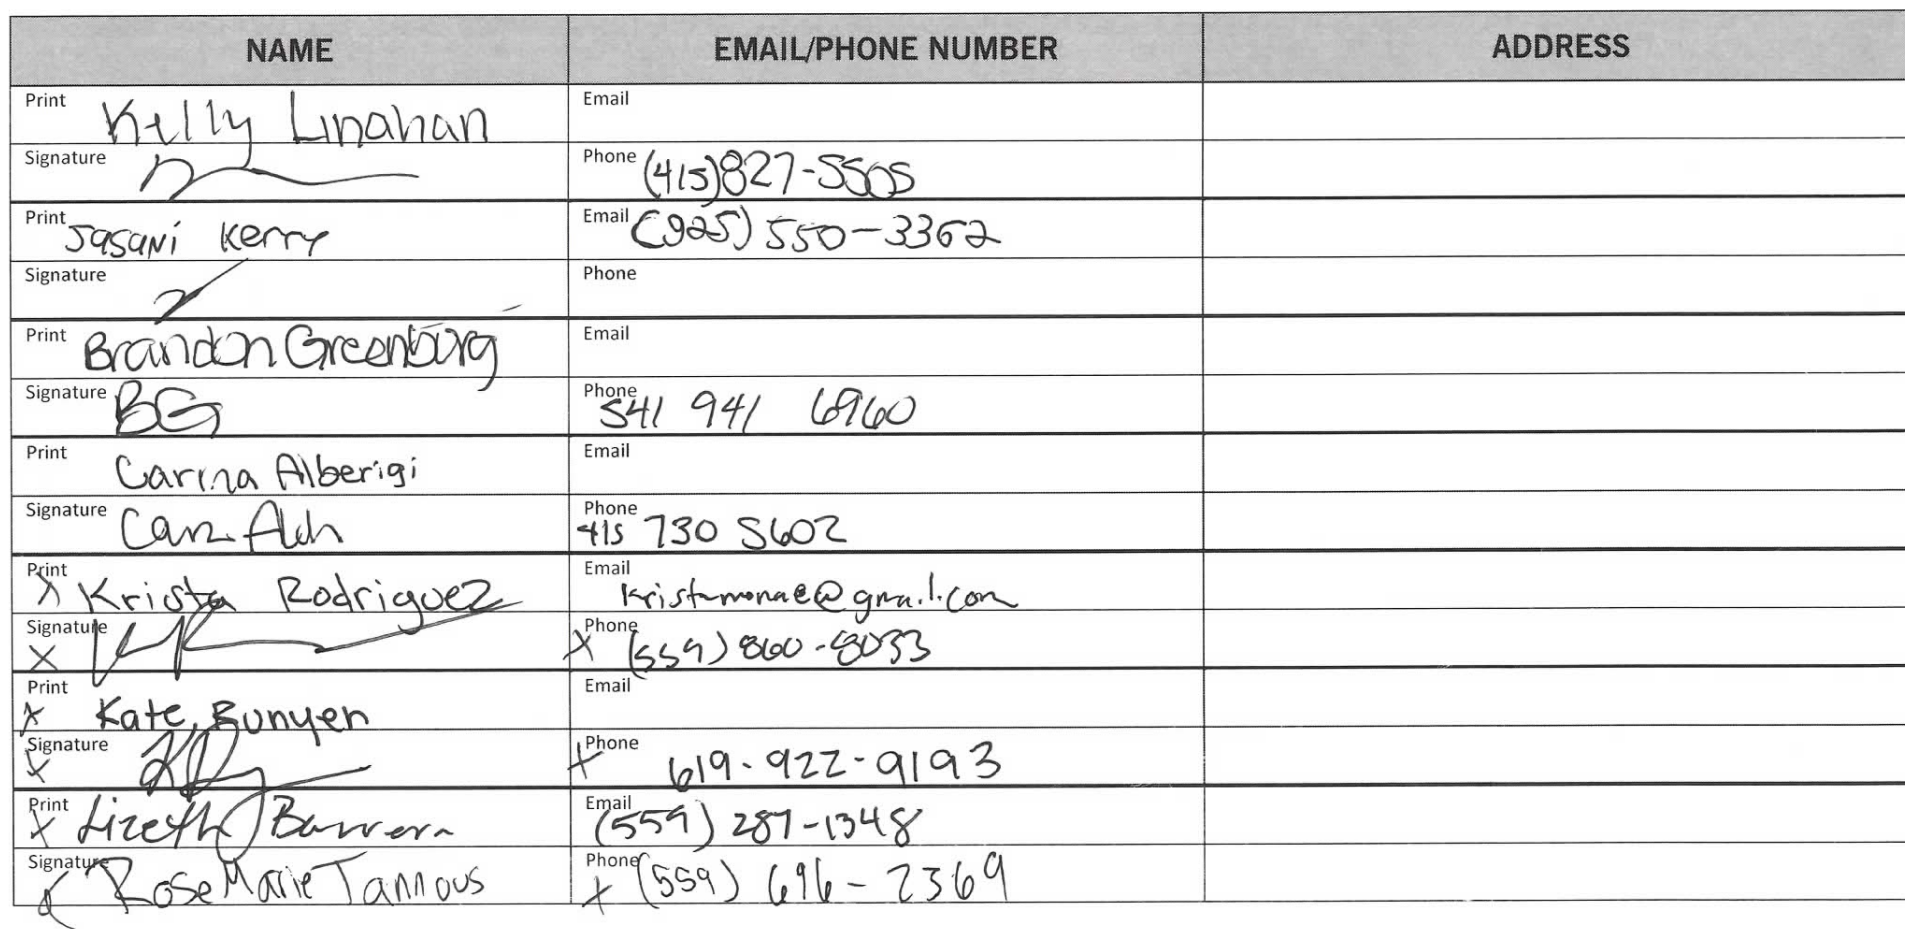 NAME EMAIL/PHONE NUMBER ADDRESS
Print Kelly Linahan Email
Signature Phone (415)827-5505
Print Jasani Kerry Email (925) 550-3362
Signature Phone
Print Brandon Greenburg Email
Signature BG Phone 541 941 6960
Print Carina Alberigi Email
Signature Phone 415 730 5602
Print X Krista Rodriguez Email kristamonae@gmail.com
Signature X Phone X (559) 860-8033
Print X Kate Bunyen Email
Signature X Phone X 619-922-9193
Print X Lizeth Barrera Email (559) 287-1348
Signature X RoseMarie Tannous Phone X (559) 696-2369